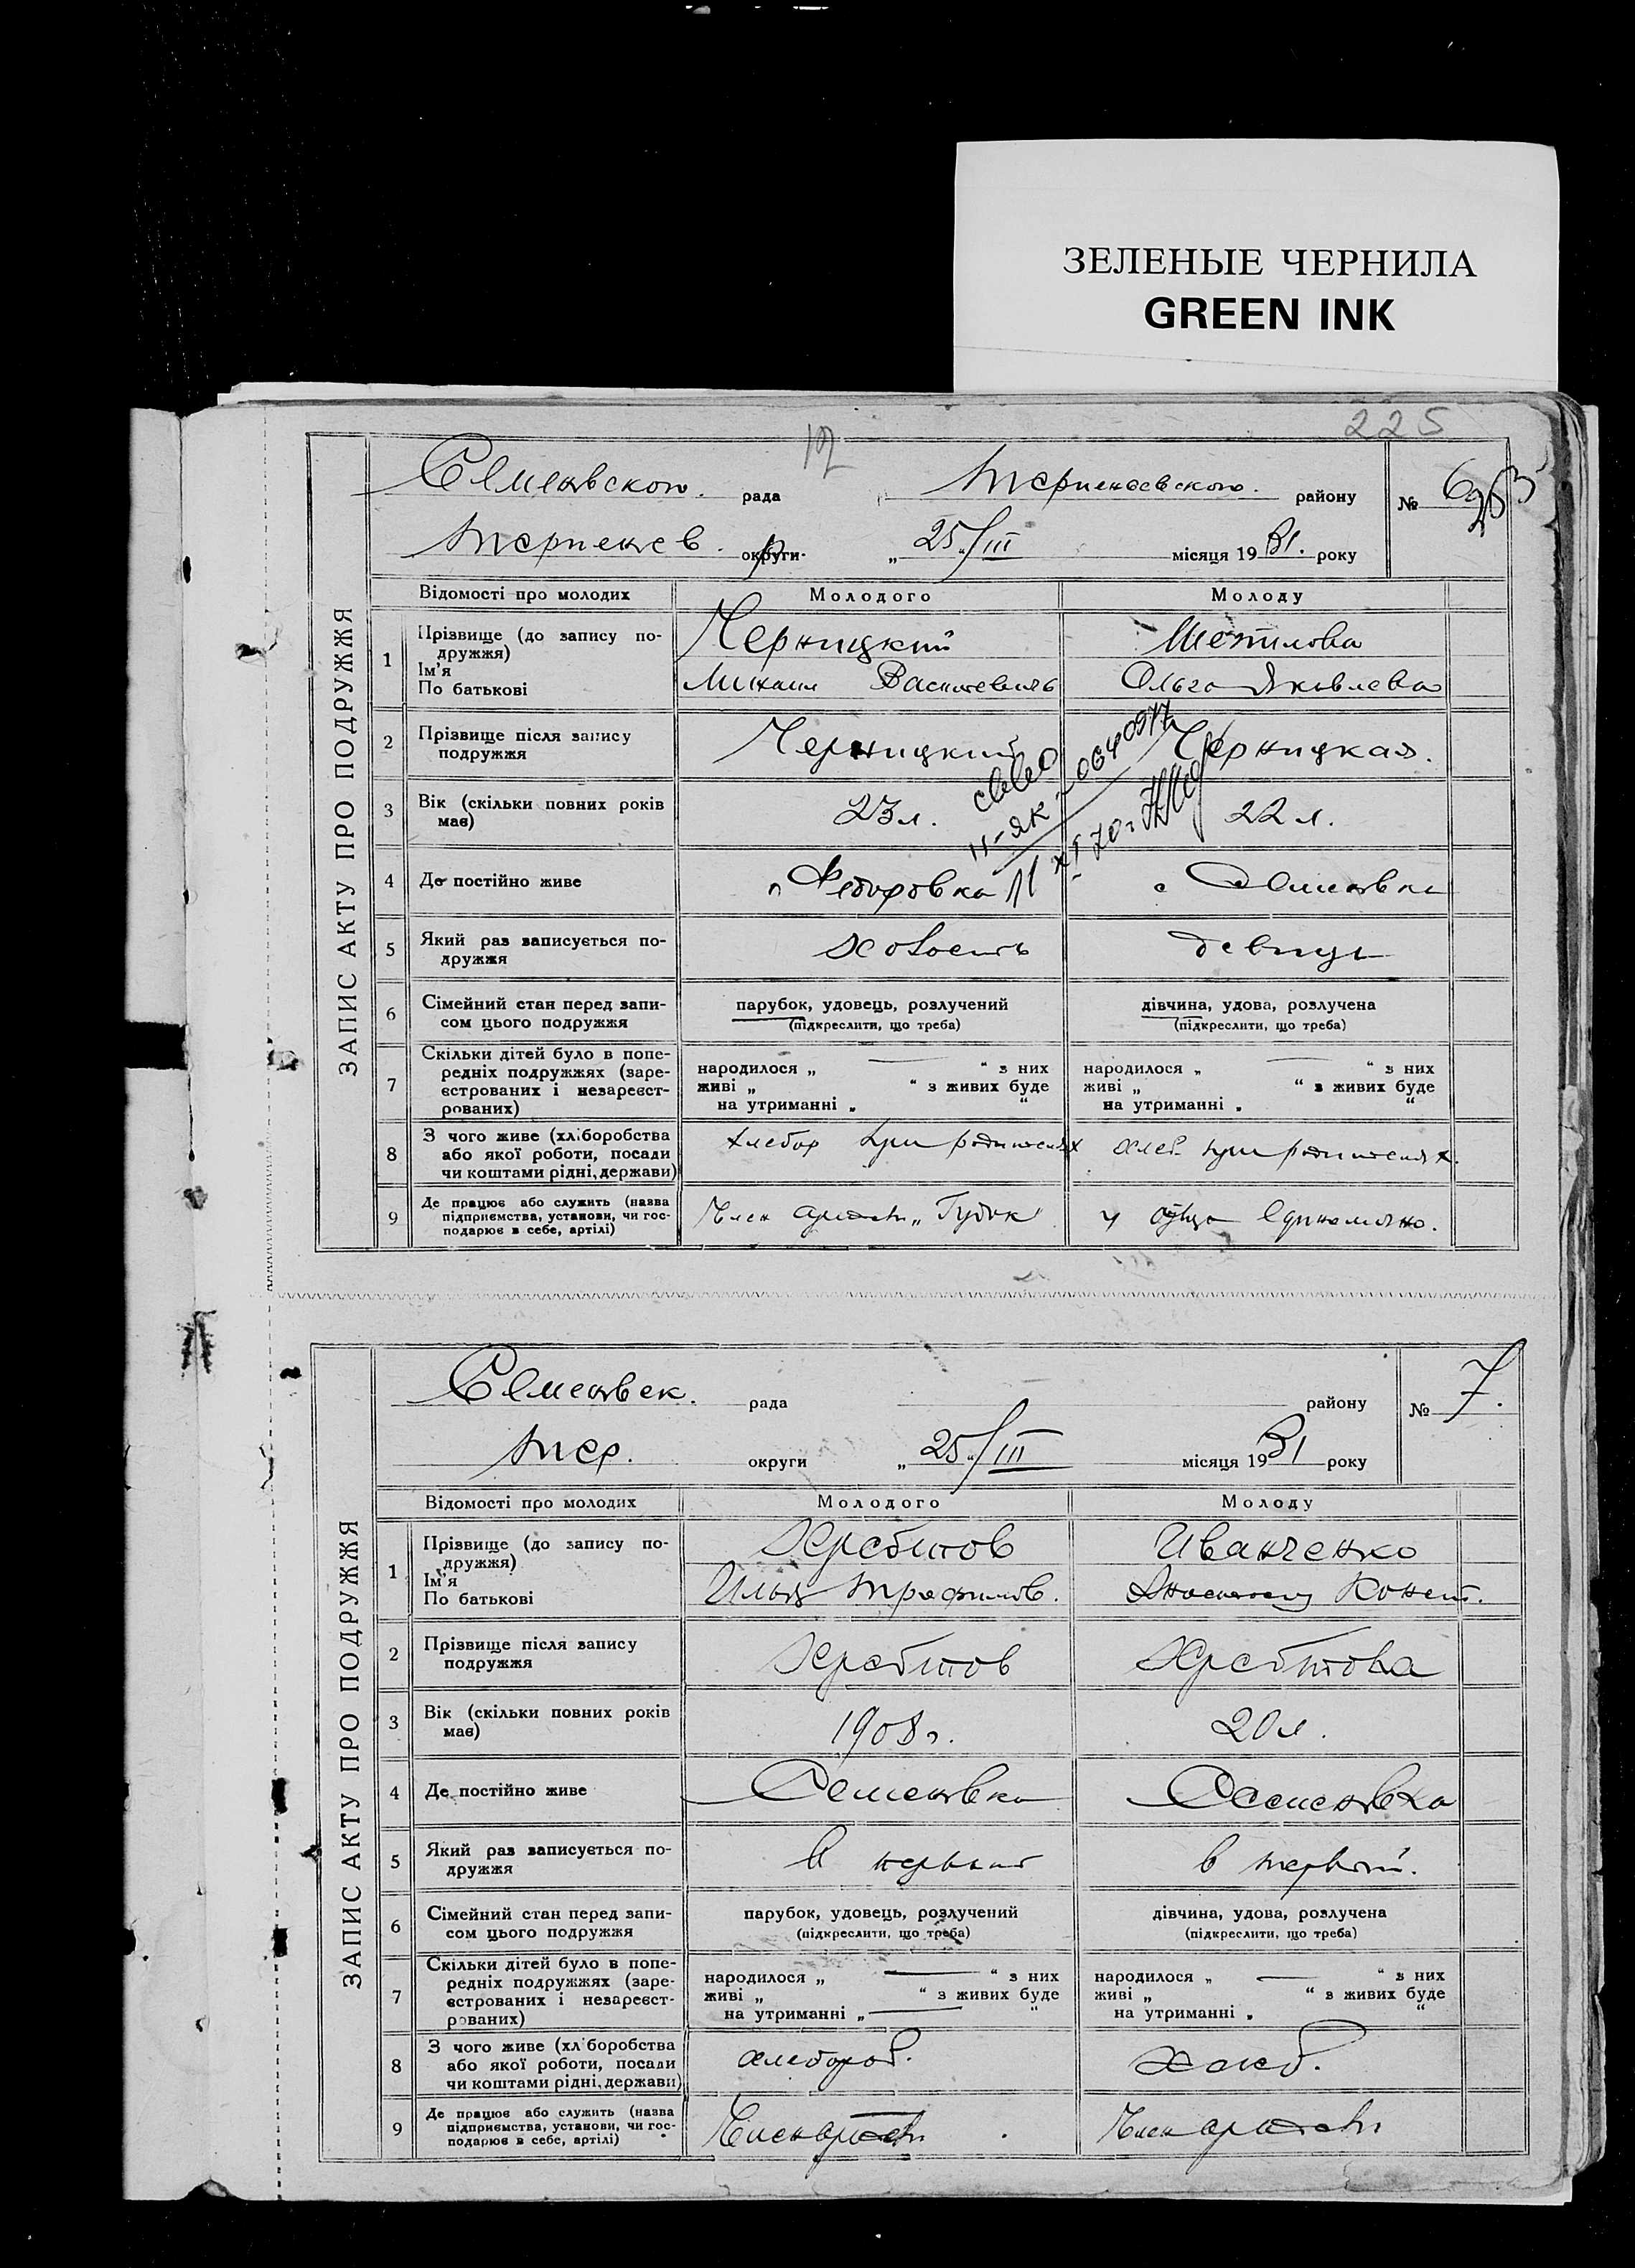 ЗЕЛЕНЫЕ ЧЕРНИЛА
GREEN INK
225
12
ЗАПИС АКТУ ПРО ПОДРУЖЖЯ
Семеновского рада района району № 6
округи „25/III місяця 1931. року
Відомості про молодих Молодого Молоду
1 Прізвище (до запису по-
дружжя)
Ім'я
По батькові
Черницкий
Михаил Васильевичь
Ольга Яковлева
2 Прізвище після запису
подружжя
Черницкий Черницкая.
3 Вік (скільки повних років
має)
23 л. 22 л.
4 Де постійно живе Федоровка с Семеновка
5 Який раз записується по-
дружжя
холость девица
6 Сімейний стан перед запи-
сом цього подружжя
парубок, удовець, розлучений дівчина, удова, розлучена
(підкреслити, що треба) (підкреслити, що треба)
7 Скільки дітей було в попе-
редніх подружжях (заре-
єстрованих і незареєст-
рованих)
народилося „ — “ з них народилося „ — “ з них
живі „ “ з живих буде живі „ “ з живих буде
на утриманні „ “ на утриманні „ “
8 З чого живе (хліборобства
або якої роботи, посади
чи коштами рідні, держави)
хлебор при родителях хлеб при родителях.
9 Де працює або служить (назва
підприємства, установи, чи гос-
подарює в себе, артілі)
Член артели „Гудок“ у отца
ЗАПИС АКТУ ПРО ПОДРУЖЖЯ
Семеновск. рада району № 7.
Тер. округи „25“/III місяця 1931 року
Відомості про молодих Молодого Молоду
1 Прізвище (до запису по-
дружжя)
Ім'я
По батькові
Хребтов Иванченко
Илья Трафимов.
2 Прізвище після запису
подружжя
Хребтов Хребтова
3 Вік (скільки повних років
має)
1908 г. 20 л.
4 Де постійно живе Семеновка Семеновка
5 Який раз записується по-
дружжя
в первый в первый.
6 Сімейний стан перед запи-
сом цього подружжя
парубок, удовець, розлучений дівчина, удова, розлучена
(підкреслити, що треба) (підкреслити, що треба)
7 Скільки дітей було в попе-
редніх подружжях (заре-
єстрованих і незареєст-
рованих)
народилося „ — “ з них народилося „ — “ з них
живі „ “ з живих буде живі „ “ з живих буде
на утриманні „ — “ на утриманні „ “
8 З чого живе (хліборобства
або якої роботи, посади
чи коштами рідні, держави)
хлебороб. хлеб.
9 Де працює або служить (назва
підприємства, установи, чи гос-
подарює в себе, артілі)
Член артели Член артели